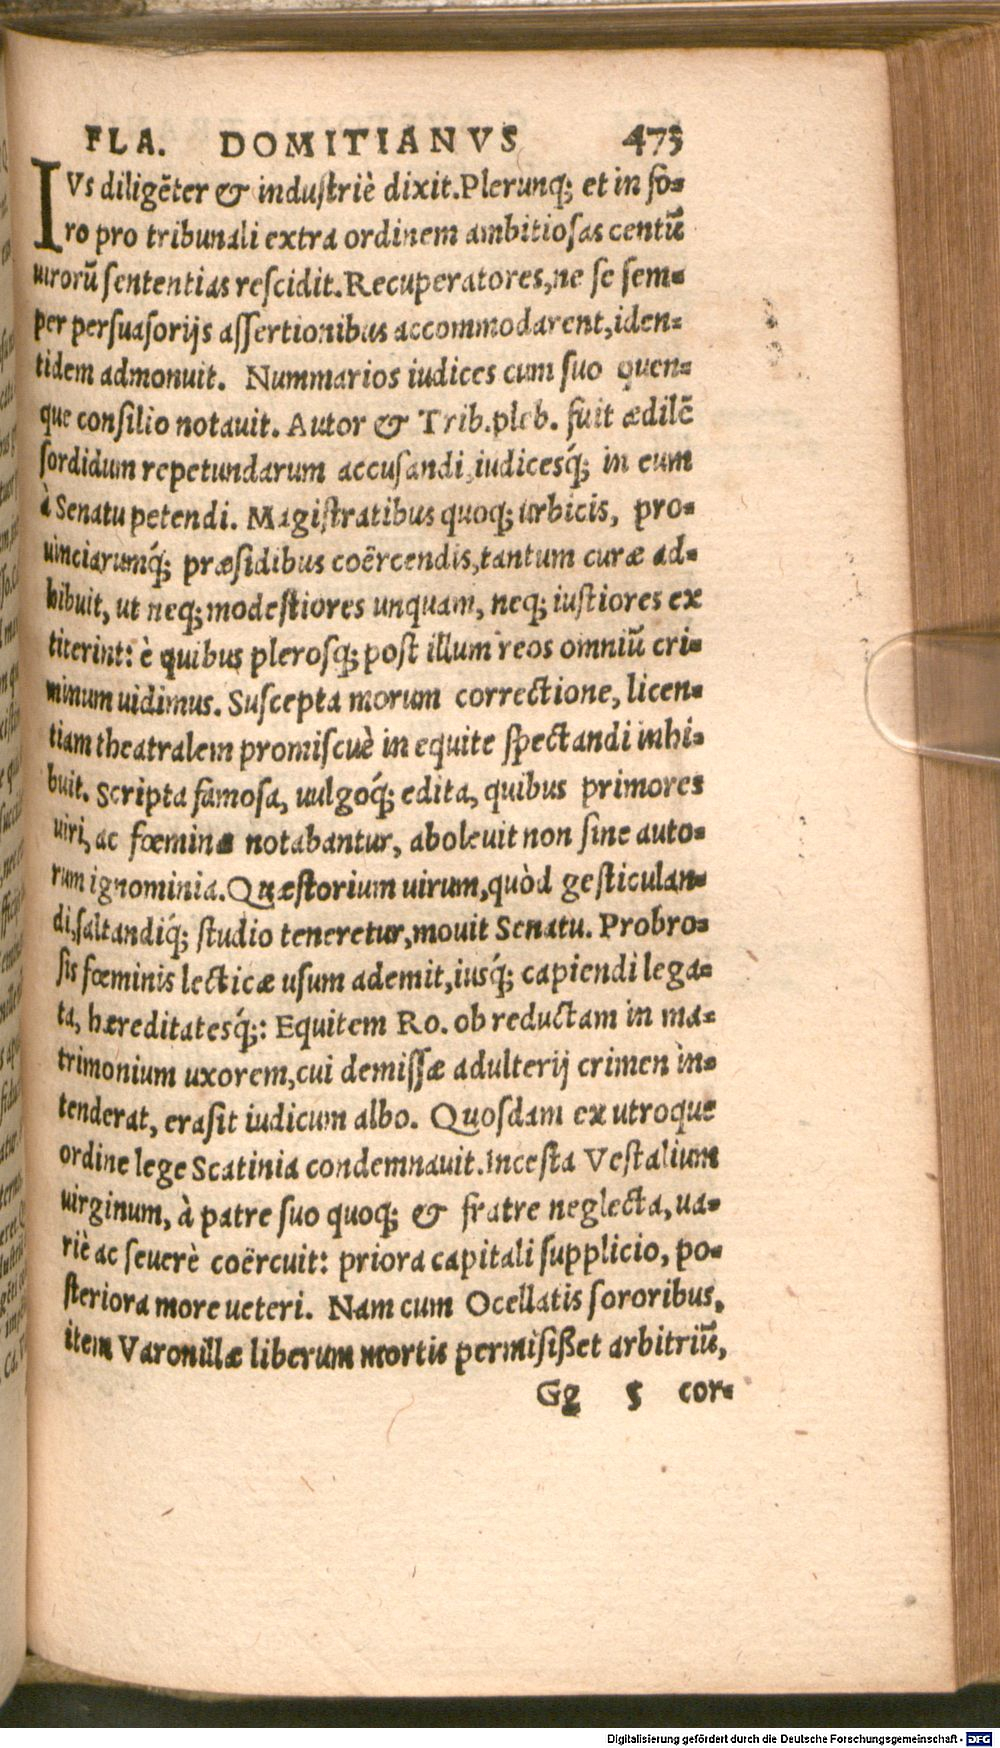 FLA. DOMITIANVS 473
IVs diligẽter & industriè dixit. Plerunq; et in fo-
ro pro tribunali extra ordinem ambitiosas centũ
uirorũ sententias rescidit. Recuperatores, ne se sem-
per persuasorijs assertionibus accommodarent, iden-
tidem admonuit. Nummarios iudices cum suo quen-
que consilio notauit. Autor & Trib. pleb. fuit ædilẽ
sordidum repetundarum accusandi, iudicesq́; in eum
à Senatu petendi. Magistratibus quoq; urbicis, pro-
uinciarumq́; præsidibus coërcendis, tantum curæ ad-
hibuit, ut neq; modestiores unquam, neq; iustiores ex
titerint: è quibus plerosq; post illum reos omniũ cri-
minum uidimus. Suscepta morum correctione, licen-
tiam theatralem promiscuè in equite spectandi inhi-
buit. Scripta famosa, uulgoq́; edita, quibus primores
uiri, ac fœminæ notabantur, aboleuit non sine auto-
rum ignominia. Quæstorium uirum, quòd gesticulan-
di, saltandiq́; studio teneretur, mouit Senatu. Probro-
sis fœminis lecticæ usum ademit, iusq́; capiendi lega-
ta, hæreditatesq́;: Equitem Ro. ob reductam in ma-
trimonium uxorem, cui demissæ adulterij crimen in-
tenderat, erasit iudicum albo. Quosdam ex utroque
ordine lege Scatinia condemnauit. Incesta Vestalium
uirginum, à patre suo quoq; & fratre neglecta, ua-
riè ac seuerè coërcuit: priora capitali supplicio, po-
steriora more ueteri. Nam cum Ocellatis sororibus,
item Varonillæ liberum mortis permisißet arbitriũ,
Gg 5 cor-
Digitalisierung gefördert durch die Deutsche Forschungsgemeinschaft - DFG